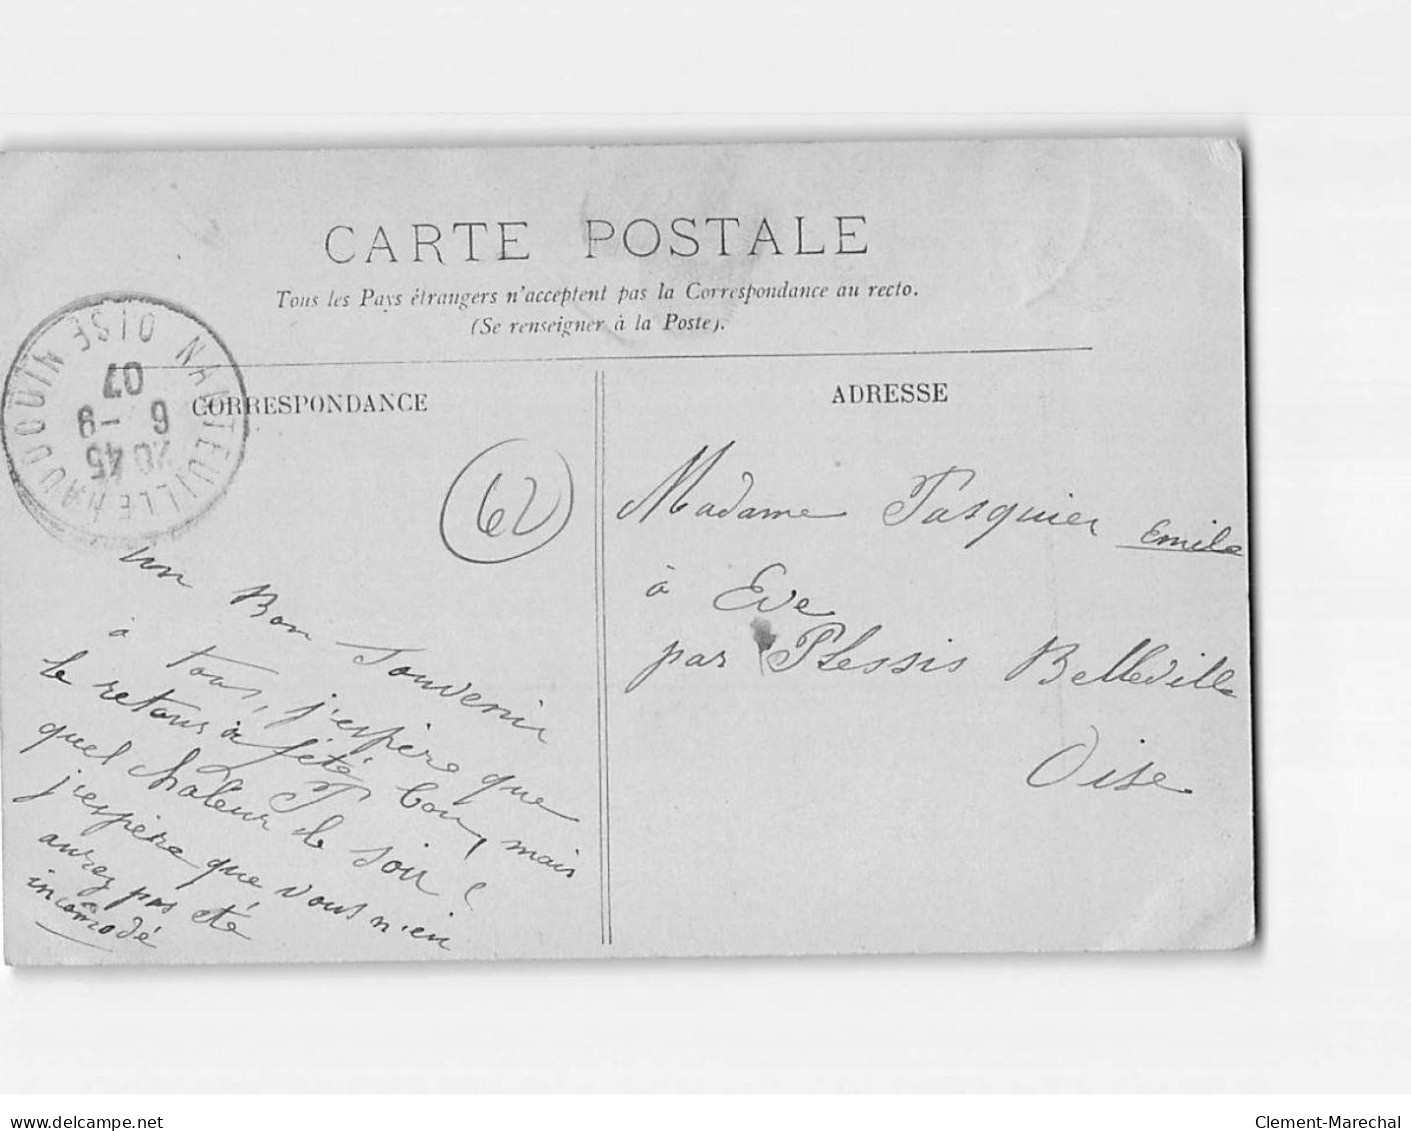 CARTE POSTALE
Tous les Pays étrangers n'acceptent pas la Correspondance au recto.
(Se renseigner à la Poste).
NANTEUIL LE HAUDOUIN OISE
20 45
6 - 9
07
CORRESPONDANCE
62
un Bon Souvenir
à tous, j'espère que
le retour à été bon, mais
quel chaleur le soir
j'espère que vous n'en
aurez pas été
incômodé
ADRESSE
Madame Pasquier Emile
à Eve
par Plessis Belleville
Oise
www.delcampe.net
Clement-Marechal